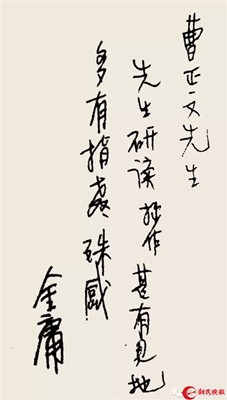 曹正文先生
先生研读拙作甚有见地
多有指教 殊感
金庸
新民晚报